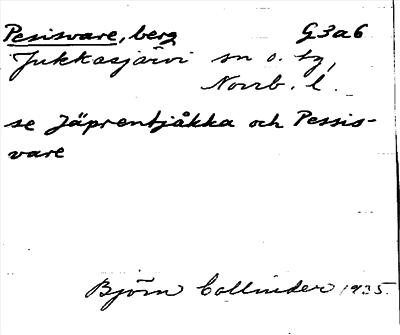 Pesisvare, berg G3a6
Jukkasjärvi sn o. tg,
Norrb. l.
se Jäprentjåkka och Pessis-
vare
Björn Collinder 1935.